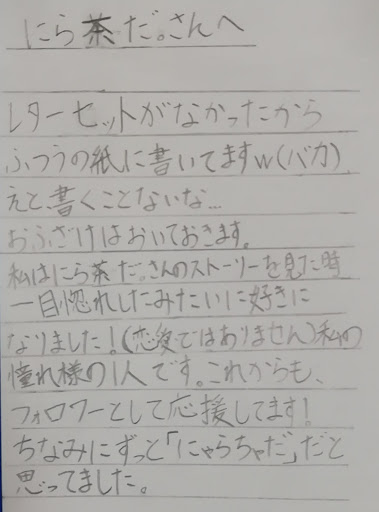 にら茶だ。さんへ
レターセットがなかったから
ふつうの紙に書いてますw(バカ)
えと、書くことないな...
おふざけはおいておきます。
私はにら茶だ。さんのストーリーを見た時
一目惚れしたみたいに好きに
なりました!(恋愛ではありません)私の
憧れ様の1人です。これからも、
フォロワーとして応援してます!
ちなみにずっと「にゃらちゃだ」だと
思ってました。